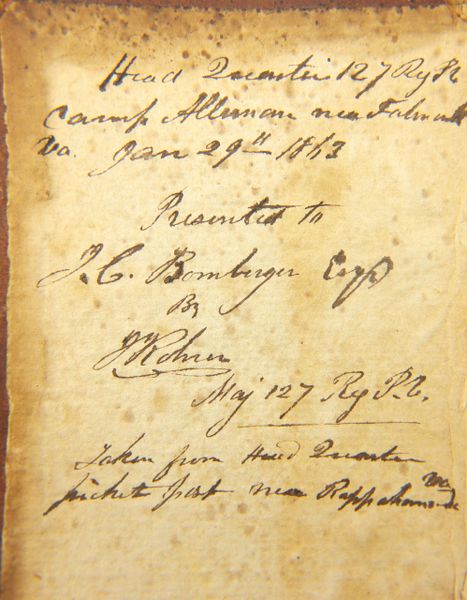 Head Quarters 127 Rg P.V.
Camp Alleman near Falmouth
Va. Jan 29th 1863
Presented to
J. C. Bomberger Esqr
By
J Rohrer
Maj 127 Rg P.V.
Taken from Head Quarters
picket post near Rappahannock
Va